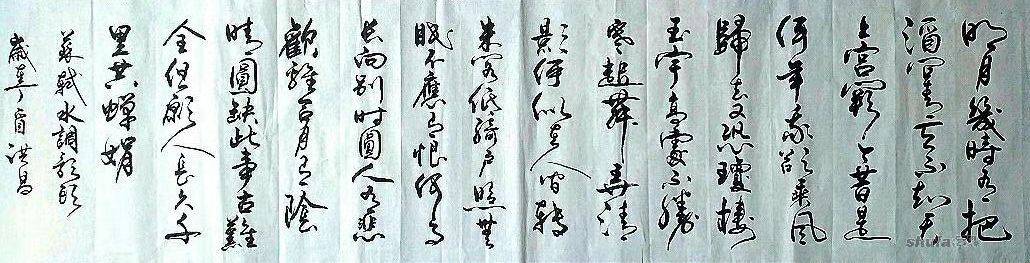 明月幾時有把
酒問青天不知天
上宮闕今昔是
何年我欲乘風
歸去又恐瓊樓
玉宇高處不勝
寒起舞弄清
影何似在人間轉
朱閣低綺戶照無
眠不應有恨何事
長向別時圓人有悲
歡離合月有陰
晴圓缺此事古難
全但願人長久千
里共蟬娟
蘇軾水調歌頭
歲在丁酉洪昌